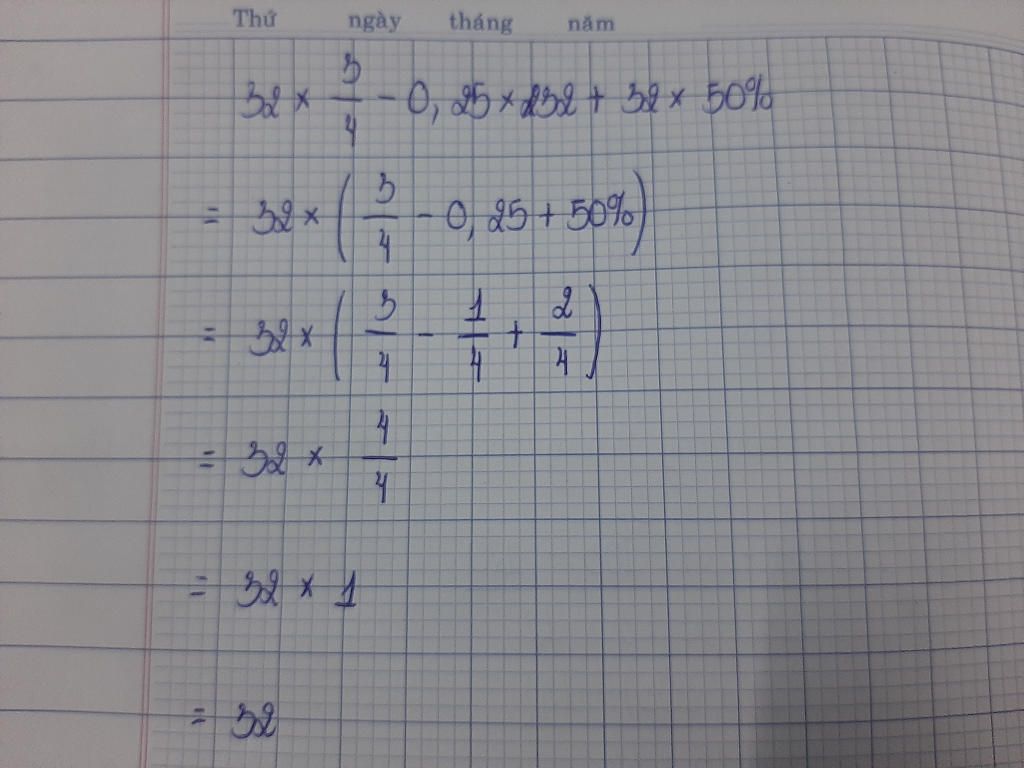 Thứ ngày tháng năm
32 × 3/4 - 0,25 × 32 + 32 × 50%
= 32 × (3/4 - 0,25 + 50%)
= 32 × (3/4 - 1/4 + 2/4)
= 32 × 4/4
= 32 × 1
= 32